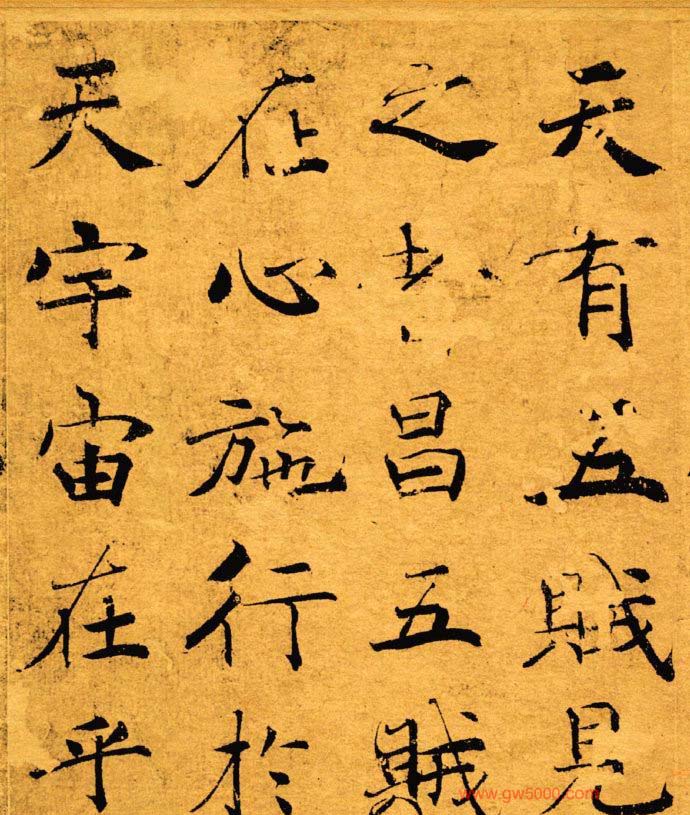 天有五賊見
之者昌五賊
在心施行於
天宇宙在乎
www.gw5000.com